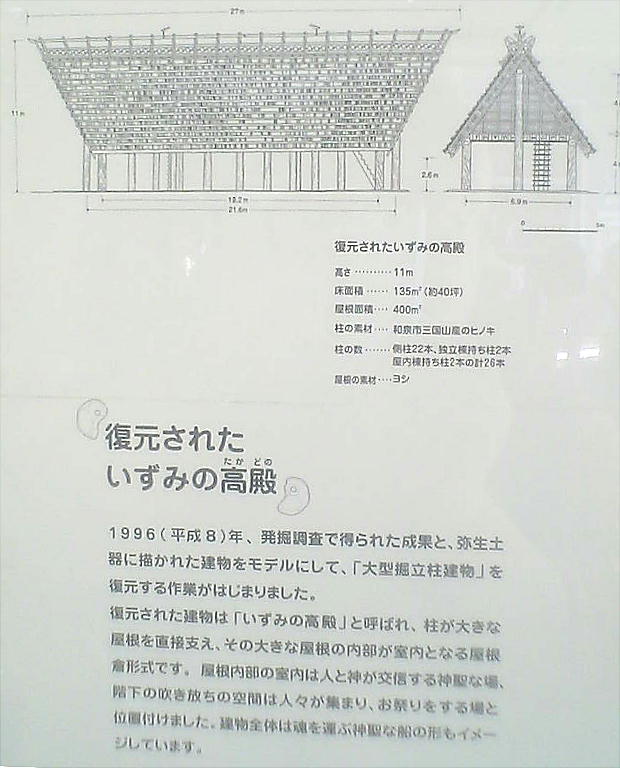 27m
11m
2.6m
19.2m
21.6m
6.9m
0
5m
復元されたいずみの高殿
高さ ・・・・・・・・・・ 11m
床面積 ・・・・・・ 135㎡(約40坪)
屋根面積 ・・・・ 400㎡
柱の素材 ・・・・ 和泉市三国山産のヒノキ
柱の数 ・・・・・・・ 側柱22本、独立棟持ち柱2本
屋内棟持ち柱2本の計26本
屋根の素材 ・・・・ ヨシ
復元された
たか どの
いずみの高殿
1996(平成8)年、発掘調査で得られた成果と、弥生土
器に描かれた建物をモデルにして、「大型掘立柱建物」を
復元する作業がはじまりました。
復元された建物は「いずみの高殿」と呼ばれ、柱が大きな
屋根を直接支え、その大きな屋根の内部が室内となる屋根
倉形式です。屋根内部の室内は人と神が交信する神聖な場、
階下の吹き放ちの空間は人々が集まり、お祭りをする場と
位置付けました。建物全体は魂を運ぶ神聖な船の形もイメー
ジしています。